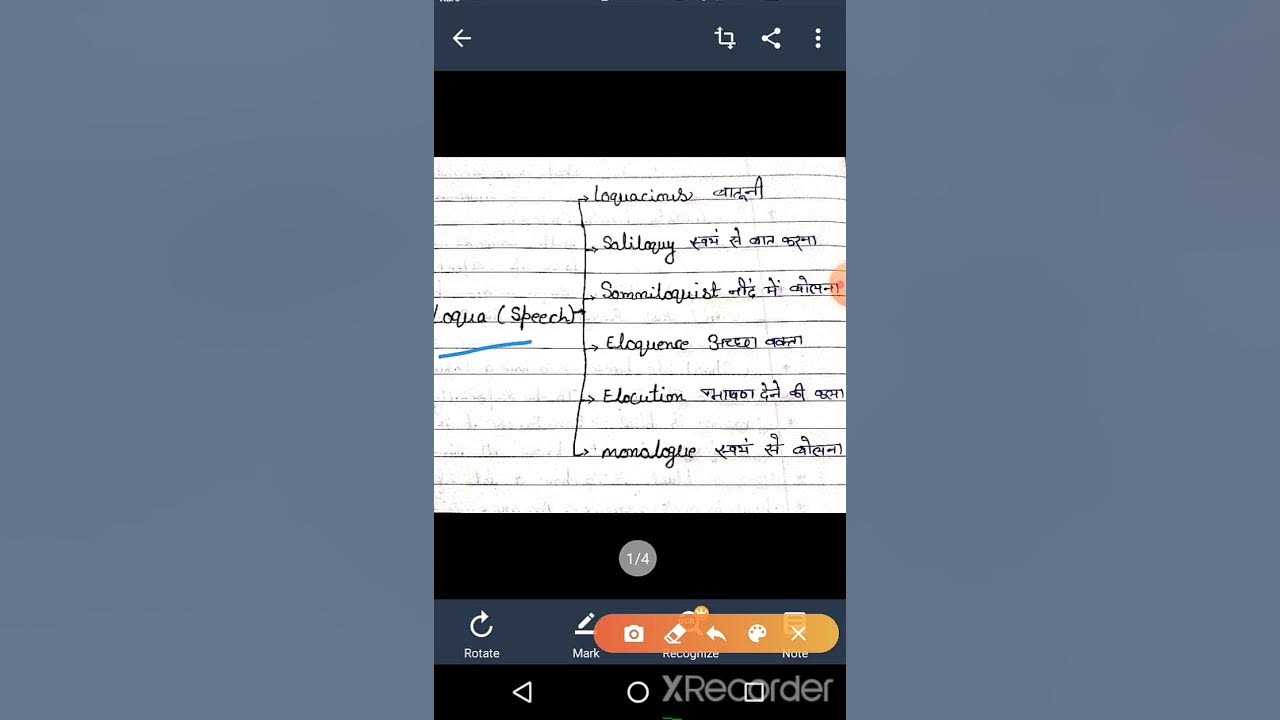 Loquacious बातूनी
Soliloquy स्वयं से बात करना
Somniloquist नींद में बोलना
loqua (Speech)
Eloquence अच्छा वक्ता
Elocution भाषण देने की कला
monologue स्वयं से बोलना
1/4
Rotate
Mark
Recognize
Note
XRecorder